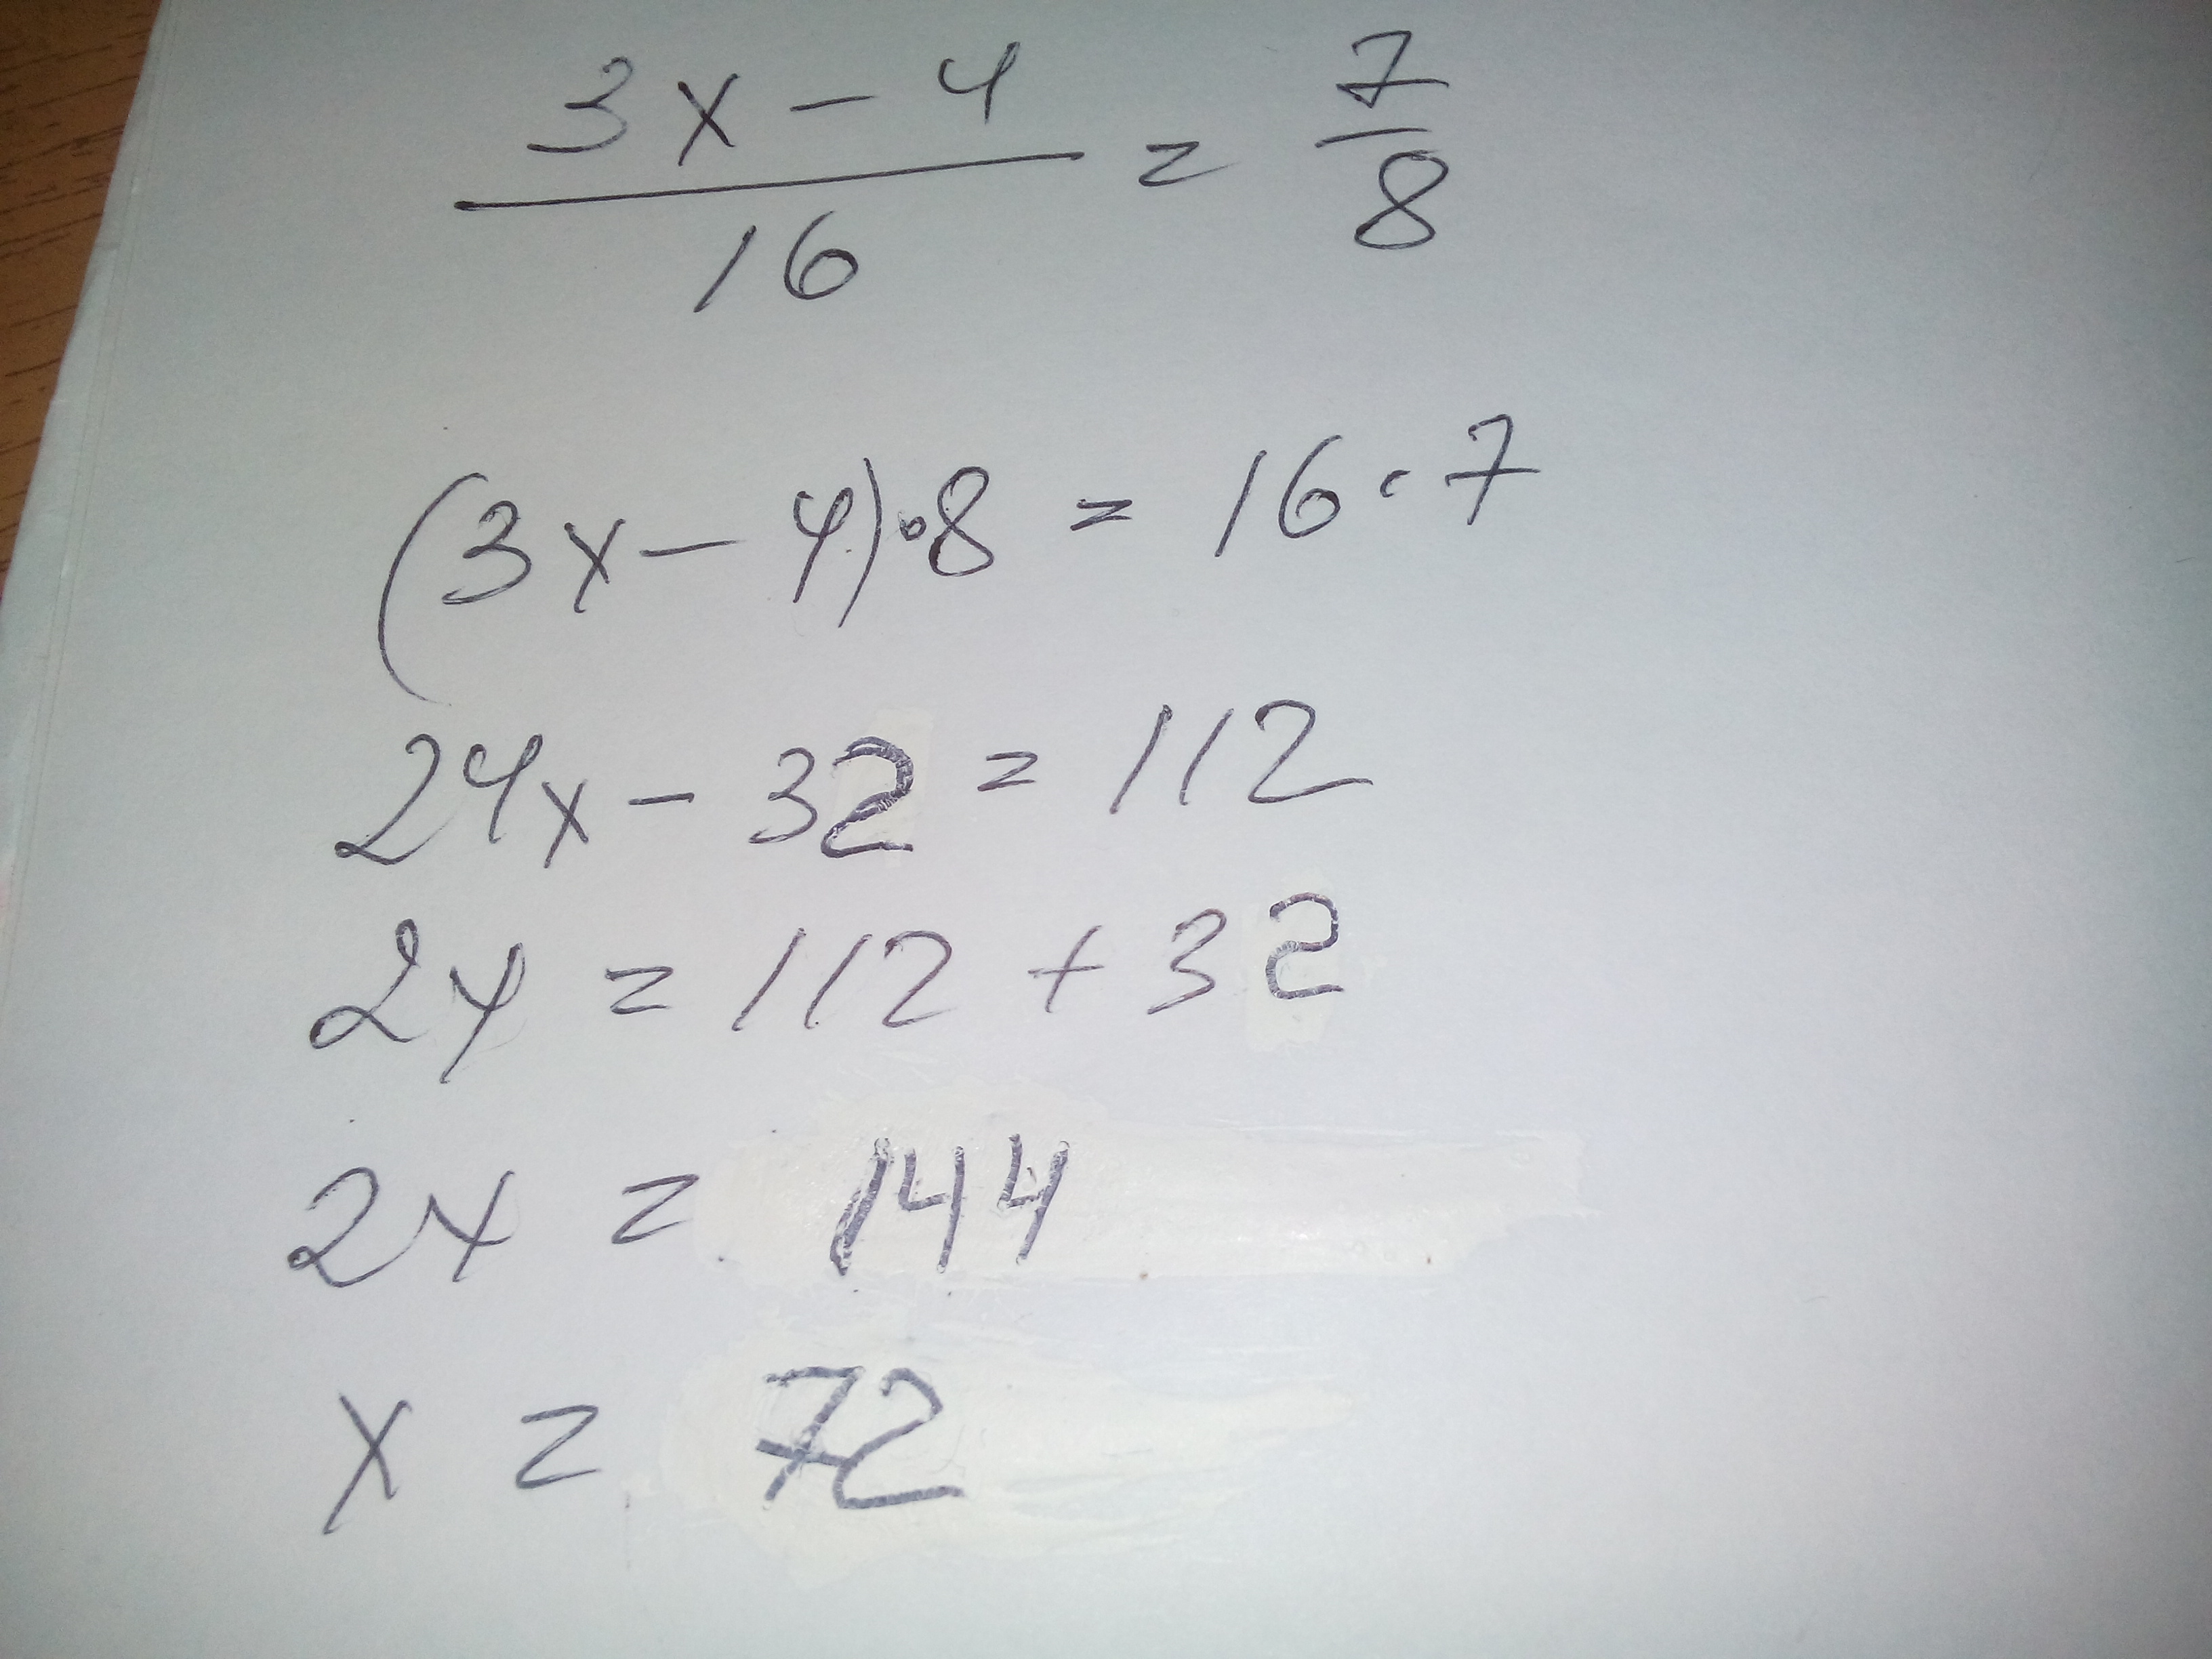 3x - 4 / 16 = 7 / 8
(3x - 4) · 8 = 16 · 7
24x - 32 = 112
2x = 112 + 32
2x = 144
x = 72